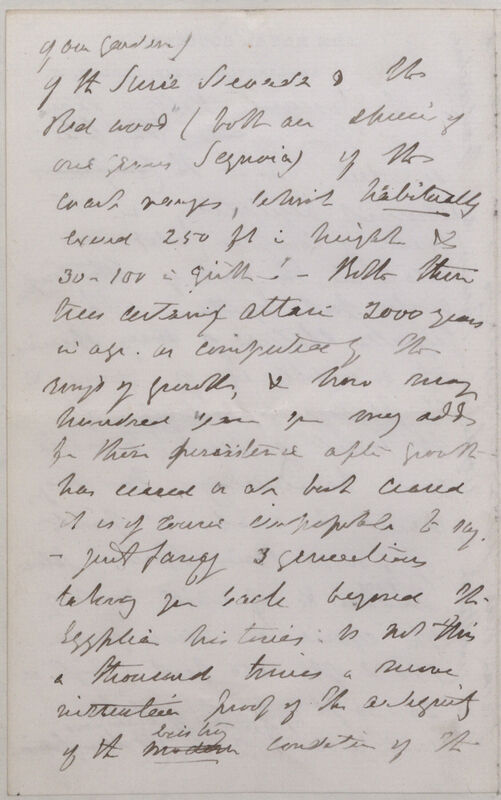 of our gardens)
of the Sierra Nevada & the
"Red wood" (both are species of
one genus Sequoia) of the
coast ranges, which habitually
exceed 250 ft in height &
30-100 in girth! - Both these
trees certainly attain 2000 years
in age. as computed by the
rings of growth, & how many
hundred years you may add
for their persistence after growth
has ceased or at best ceased
it is of course impossible to say.
- just fancy 3 generations
taking you back beyond the
Egyptian histories: is not this
a thousand times a more
proof of the antiquity
of the existing modern condition of the